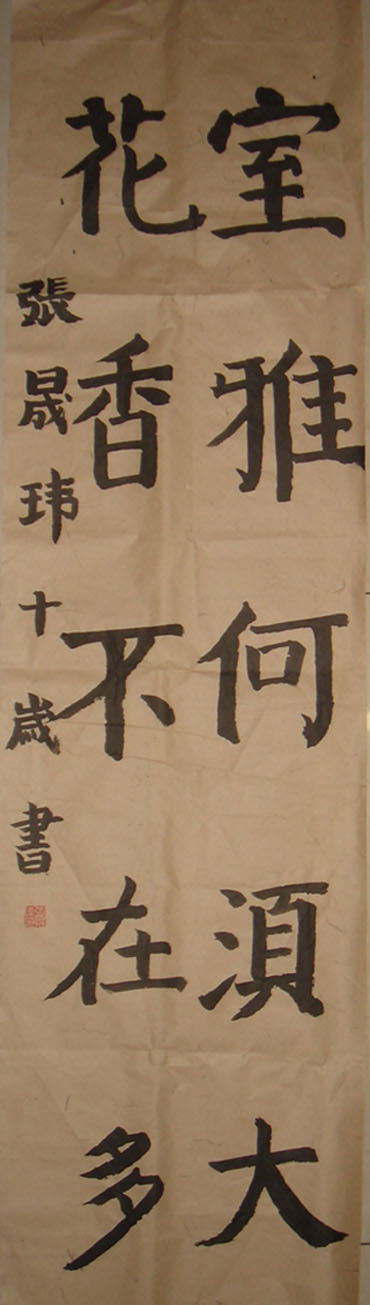 室雅何湏大
花香不在多
張晟玮十歲書